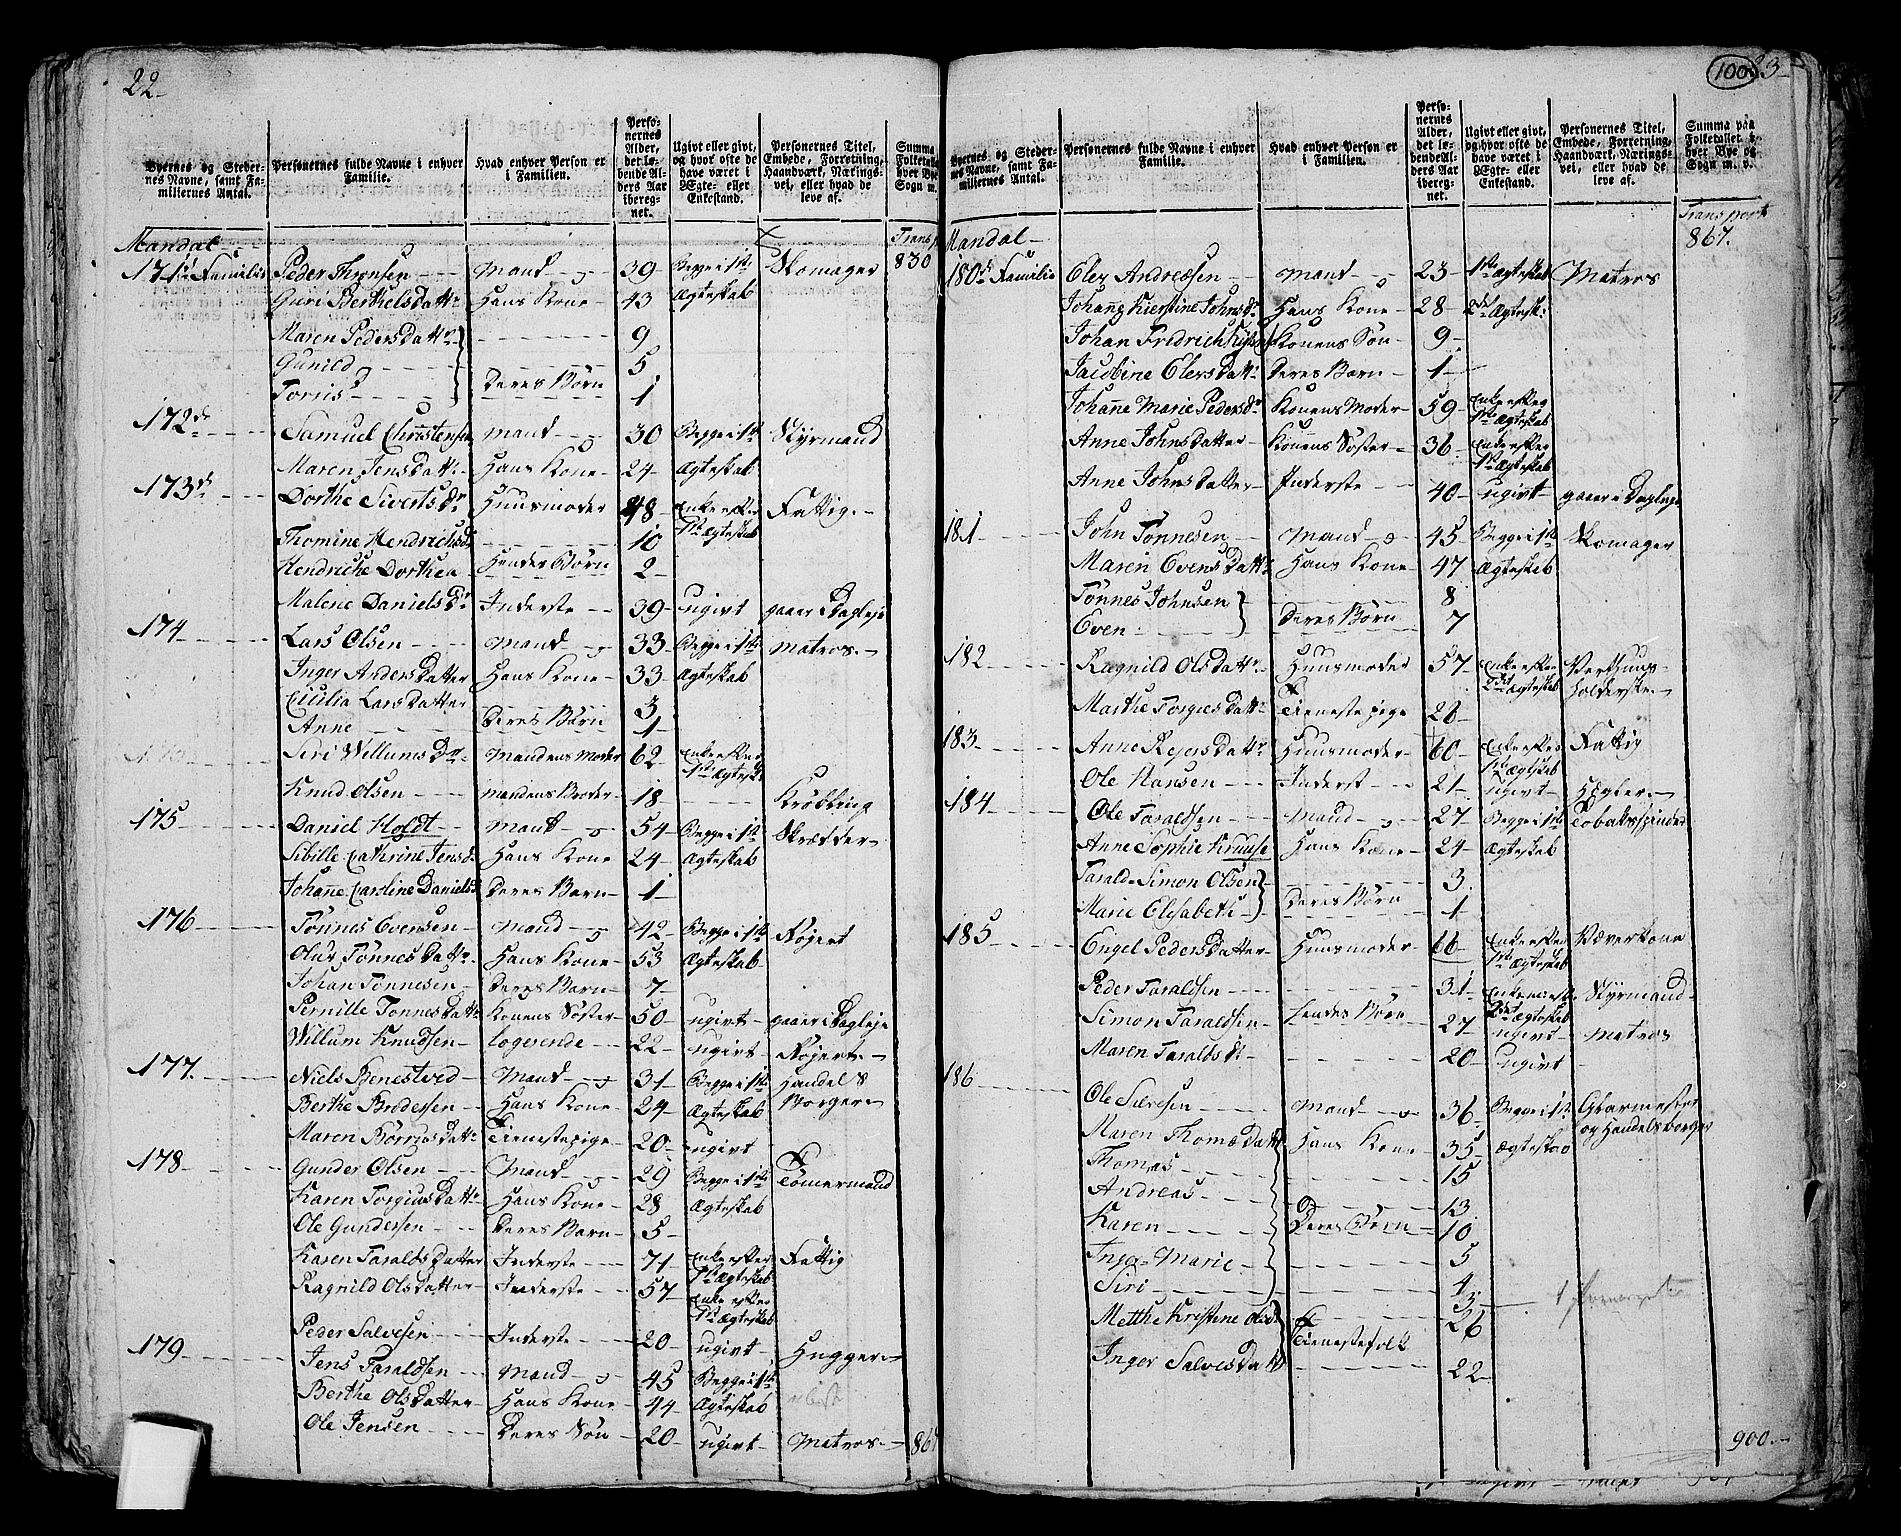 22
Byernes og Stedernes Navne, samt Familiernes Antal.
Personernes fulde Navne i enhver Familie.
Hvad enhver Person er i Familien.
Personernes Alder, det løbende Alders Aar iberegnet.
Ugivt eller givt, og hvor ofte de have været i Ægte- eller Enkestand.
Personernes Titel, Embede, Forretning, Haandværk, Næringsvei, eller hvad de leve af.
Summa Folketallet hver Bye Sogn m.
Mandal Transp 830
171de Familie Peder Thronsen Mand 39 Begge i 1ste Skomager
Guri Berthelsdattr Hans Kone 43 Ægteskab
Maren Pedersdattr 9
Gunild 5
Torris Deres Børn 1
172de Samuel Christensen Mand 30 Begge i 1ste Styrmand
Maren Jensdattr Hans Kone 24 Ægteskab
173de Dorthe Sivertsdr Huusmoder 48 Enke efter 1ste Ægteskab Fattig
Thomine Hendrichsdr 10
Hendriche Dorthea Hendes Børn 2
Malene Danielsdr Inderste 39 ugivt gaaer i Dagleje
174 Lars Olsen Mand 33 Begge i 1ste Matros
Inger Andersdatter Hans Kone 33 Ægteskab
Cicilia Larsdatter 3
Anne Deres Børn 1
Siri Willumsdr Mandens Moder 62 Enke efter 1ste Ægtesk
Knud Olsen Mandens Broder 18 Krøbbling
175 Daniel Holdt Mand 54 Begge i 1ste Skrædder
Sibille Cathrine Jensd. Hans Kone 24 Ægteskab
Johanne Caroline Danielsd Deres Barn 1
176 Tønnes Evensen Mand 42 Begge i 1ste Røgert
Olus Tønnesdattr Hans Kone 53 Ægteskab
Johan Tønnesen Deres Barn 7
Pernille Tønnesdattr Konens Søster 50 ugivt gaaer i Dagleje
Willum Knudsen Logerende 22 ugivt Røgert
177 Niels Benestved Mand 31 Begge i 1ste Handels Borger
Berthe Brodersen Hans Kone 24 Ægteskab
Maren Børrusdattr Tienestepige 20 ugivt
178 Gunder Olsen Mand 29 Begge i 1ste Tømermand
Karen Torgiusdattr Hans Kone 28 Ægteskab
Ole Gundersen Deres Barn 5
Karen Taraldsdatter Inderste 71 Enke efter 1ste Ægteskab Fattig
Ragnild Olsdatter Inderste 57 Enke efter 1ste Ægteskab
Peder Salvesen Inderste 20 ugivt Hugger
179 Jens Taraldsen Mand 45 Begge i 1ste
Berthe Olsdatter Hans Kone 44 Ægteskab
Ole Jensen Deres Søn 20 ugivt Matros 867
100 23
Byernes og Stedernes Navne, samt Familiernes Antal.
Personernes fulde Navne i enhver Familie.
Hvad enhver Person er i Familien.
Personernes Alder, det løbende Alders Aar iberegnet.
Ugivt eller givt, og hvor ofte de have været i Ægte- eller Enkestand.
Personernes Titel, Embede, Forretning, Haandværk, Næringsvei, eller hvad de leve af.
Summa paa Folketallet i hver Bye og Sogn m. v.
Mandal Transport 867.
180de Familie Eler Andreæsen Mand 23 1ste Ægteskab Matros
Johanne Kierstine Johnsdr Hans Kone 28 2det Ægtesk:
Johan Fredrich Konens Søn 9
Jacobine Elersdattr Deres Barn 1
Johanne Marie Pedersdr Konens Moder 59 Enke efter 1ste Ægteskab
Anne Johnsdatter Konens Søster 36 Enke efter 1ste Ægteskab
Anne Johnsdatter Inderste 40 ugivt gaaer i Dagleje
181 John Tønnesen Mand 45 Begge i 1ste Skomager
Maren Evensdattr Hans Kone 47 Ægteskab
Tønnes Johnsen 8
Even Deres Børn 7
182 Ragnild Olsdattr Huusmoder 57 Enke efter 2det Ægteskab Vertshuusholderske
Marthe Torgiesdattr Tienestepige 28
183 Anne Rejersdattr Huusmoder 60 Enke efter 1ste Ægteskab Fattig
Ole Hansen Inderst 21 ugivt Høgler
184 Ole Taraldsen Mand 27 Begge i 1ste Tobakspinder
Anne Sophie Kruuse Hans Kone 24 Ægteskab
Tarald Simon Olsen 3
Marie Elisabeth Deres Børn 1
185 Engel Pedersdatter Huusmoder 66 Enke efter 1ste Ægteskab Væverkone
Peder Taraldsen 31 Enkemand 2det Ægteskab Styrmand
Simon Taraldsen Hendes Børn 27 ugivt Matros
Maren Taraldsdr 20 ugivt
186 Ole Salvesen Mand 36 Begge i 1ste Glarmester og Handelsborger
Maren Thomædattr Hans Kone 35 Ægteskab
Thomas 15
Andreas 13
Karen Deres Børn 10
Inger Marie 5
Siri 4
3
Metthe Kristine Olsdr 26
Tienestefolk
Inger Salvesdatter 22
900.